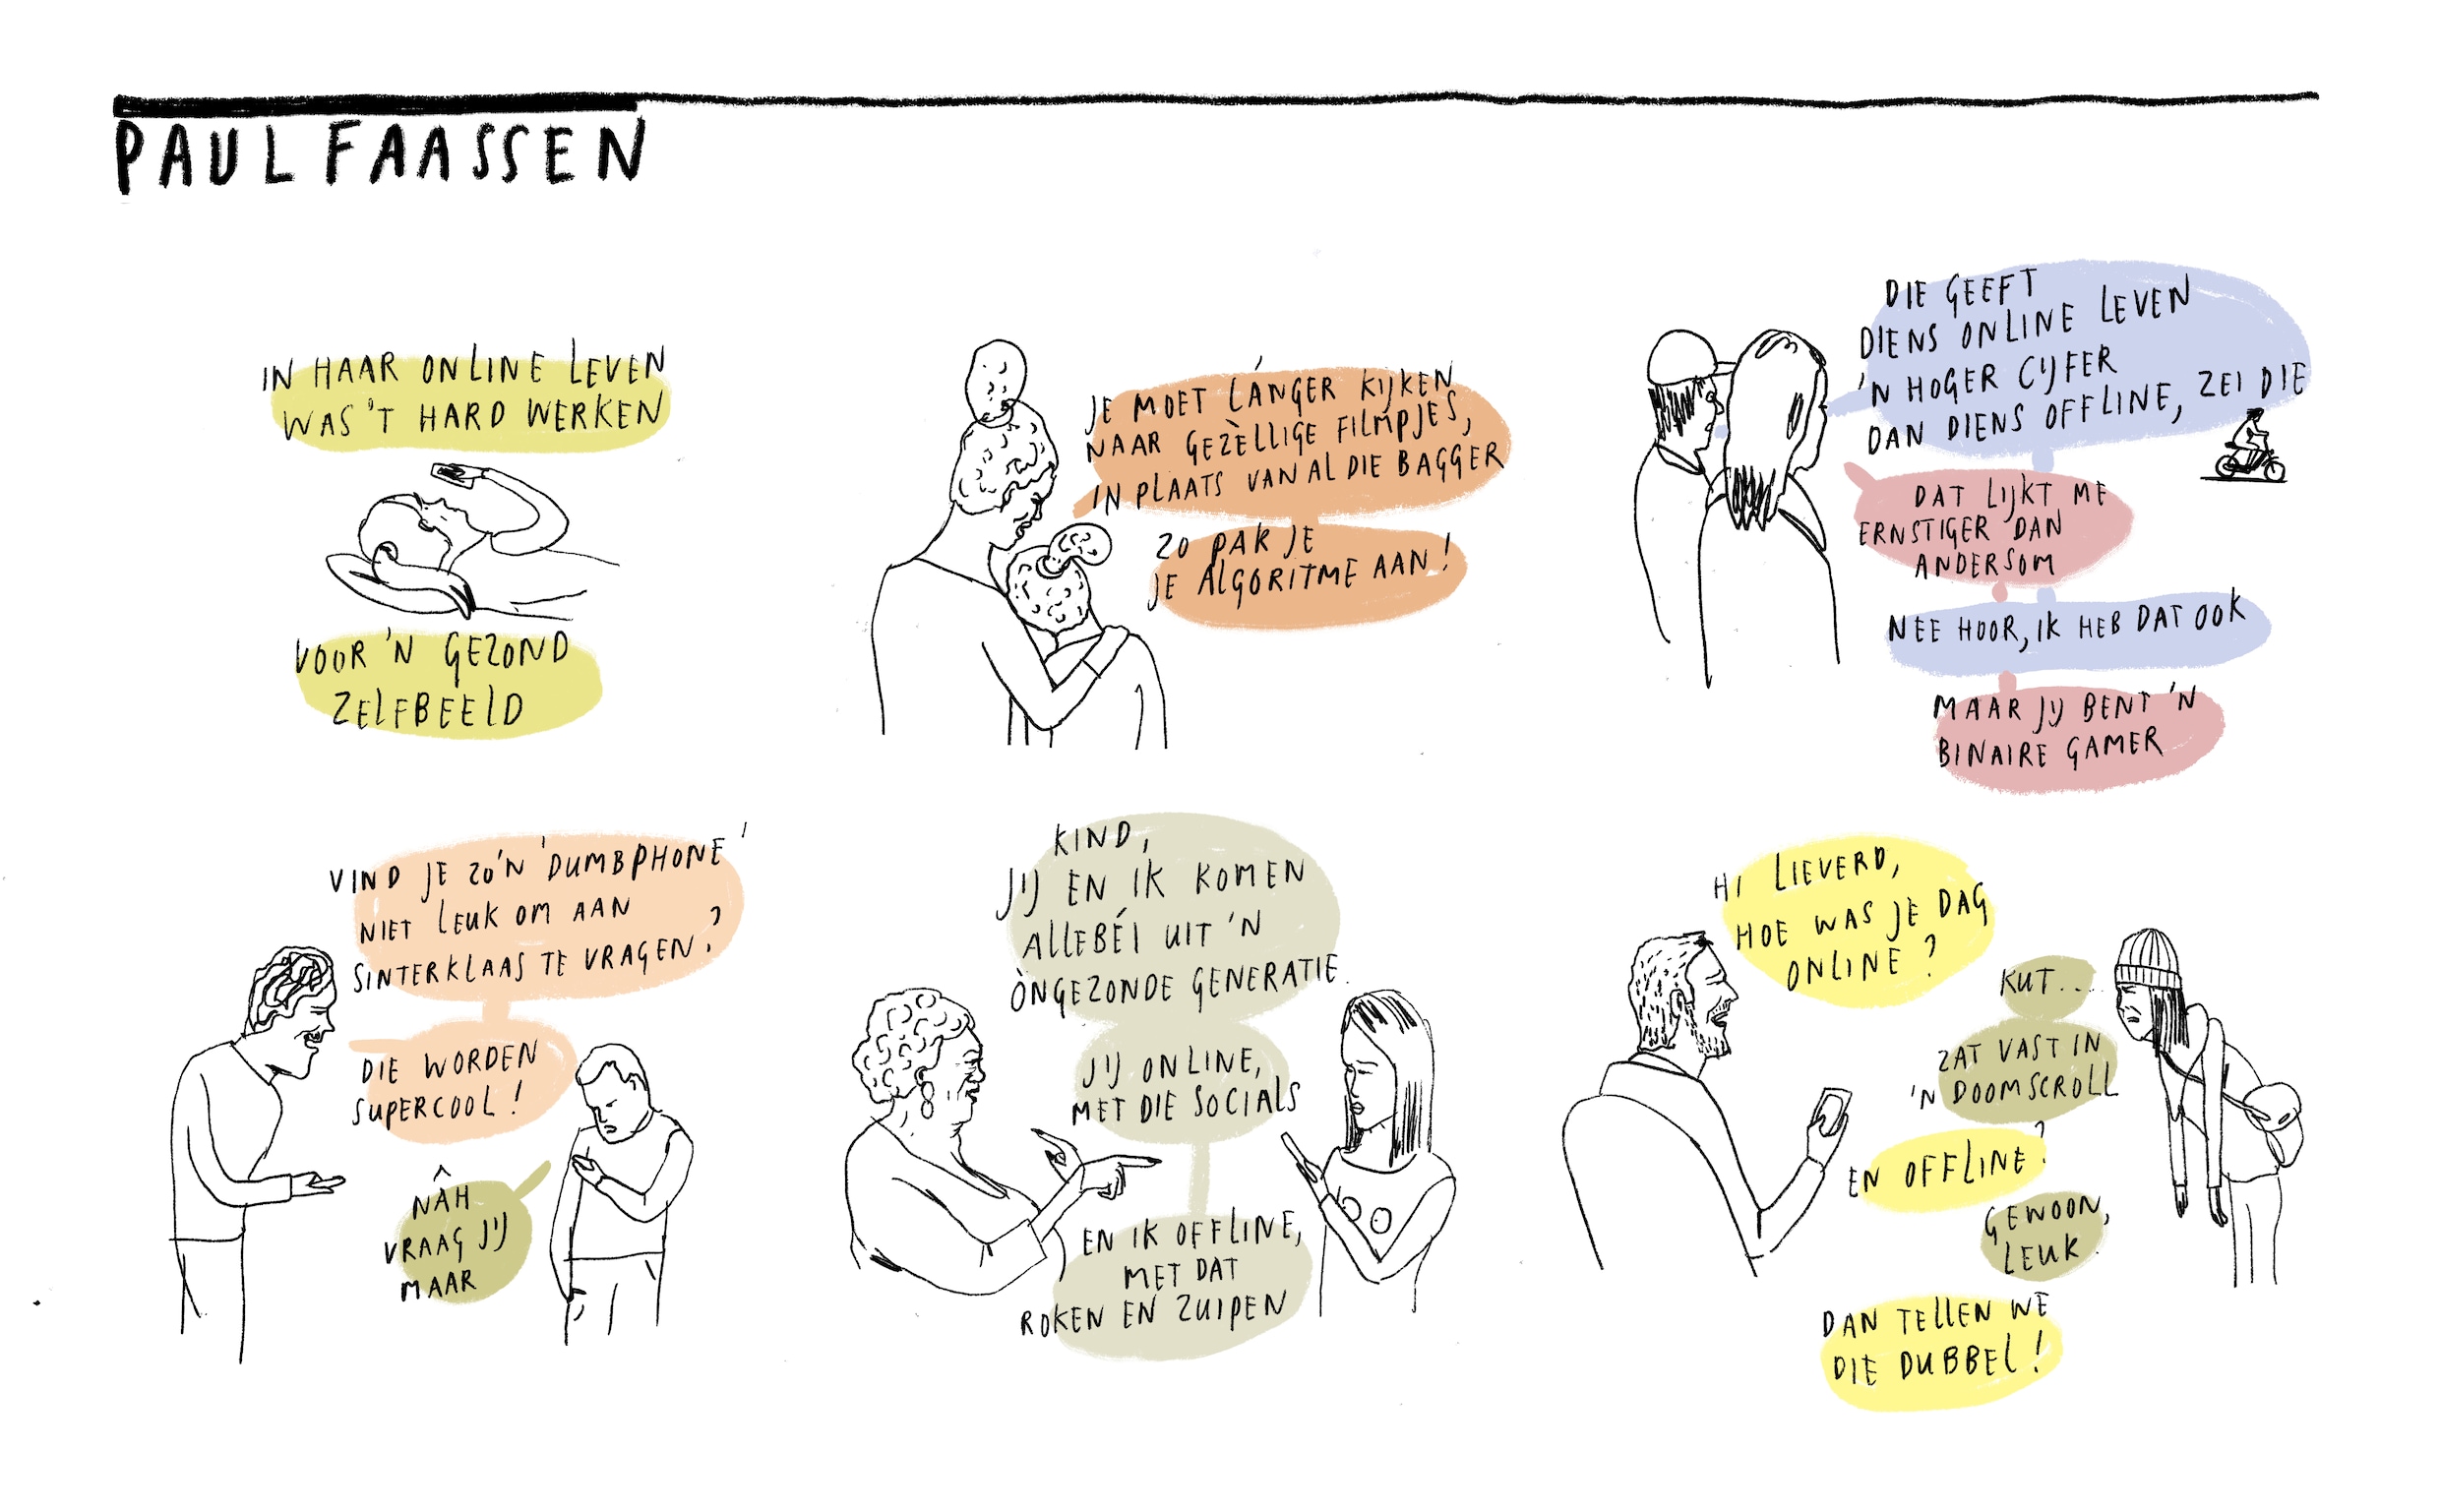 PAUL FAASSEN
IN HAAR ONLINE LEVEN
WAS 'T HARD WERKEN
VOOR 'N GEZOND
ZELFBEELD
JE MOET LÁNGER KIJKEN
NAAR GEZÈLLIGE FILMPJES,
IN PLAATS VAN AL DIE BAGGER
ZO PAK JE
JE ALGORITME AAN!
DIE GEEFT
DIENS ONLINE LEVEN
'N HOGER CIJFER
DAN DIENS OFFLINE, ZEI DIE
DAT LIJKT ME
ERNSTIGER DAN
ANDERSOM
NEE HOOR, IK HEB DAT OOK
MAAR JIJ BENT 'N
BINAIRE GAMER
VIND JE ZO'N 'DUMBPHONE'
NIET LEUK OM AAN
SINTERKLAAS TE VRAGEN?
DIE WORDEN
SUPERCOOL!
NÂH
VRAAG JIJ
MAAR
KIND,
JIJ EN IK KOMEN
ALLEBÉI UIT 'N
ÒNGEZONDE GENERATIE.
JIJ ONLINE,
MET DIE SOCIALS
EN IK OFFLINE,
MET DAT
ROKEN EN ZUIPEN
HI LIEVERD,
HOE WAS JE DAG
ONLINE?
KUT....
ZAT VAST IN
'N DOOMSCROLL
EN OFFLINE?
GEWOON,
LEUK.
DAN TELLEN WE
DIE DUBBEL!